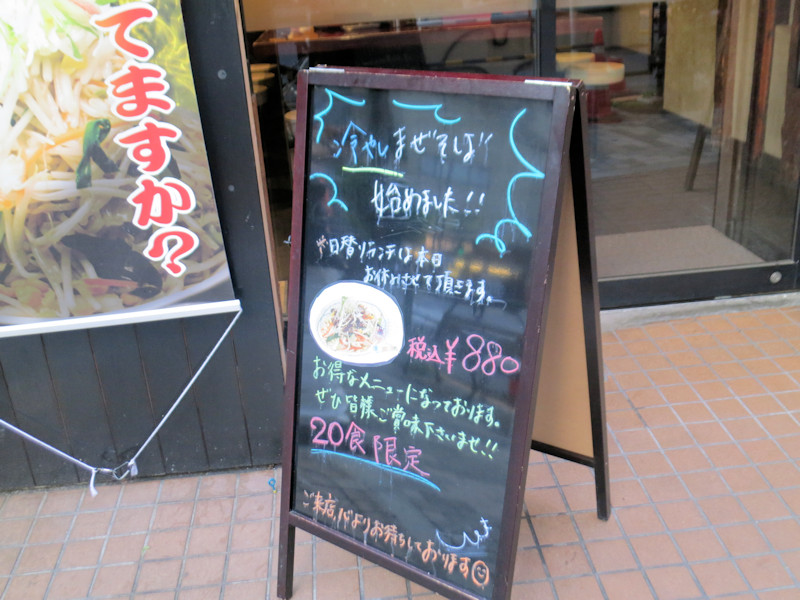 てますか?
冷やしまぜそば
始めました!!
*日替りランチは本日
お休みさせて頂きます。
税込¥880
お得なメニューになっております。
ぜひ皆様ご賞味下さいませ!!
20食限定
ご来店、心よりお待ちしております